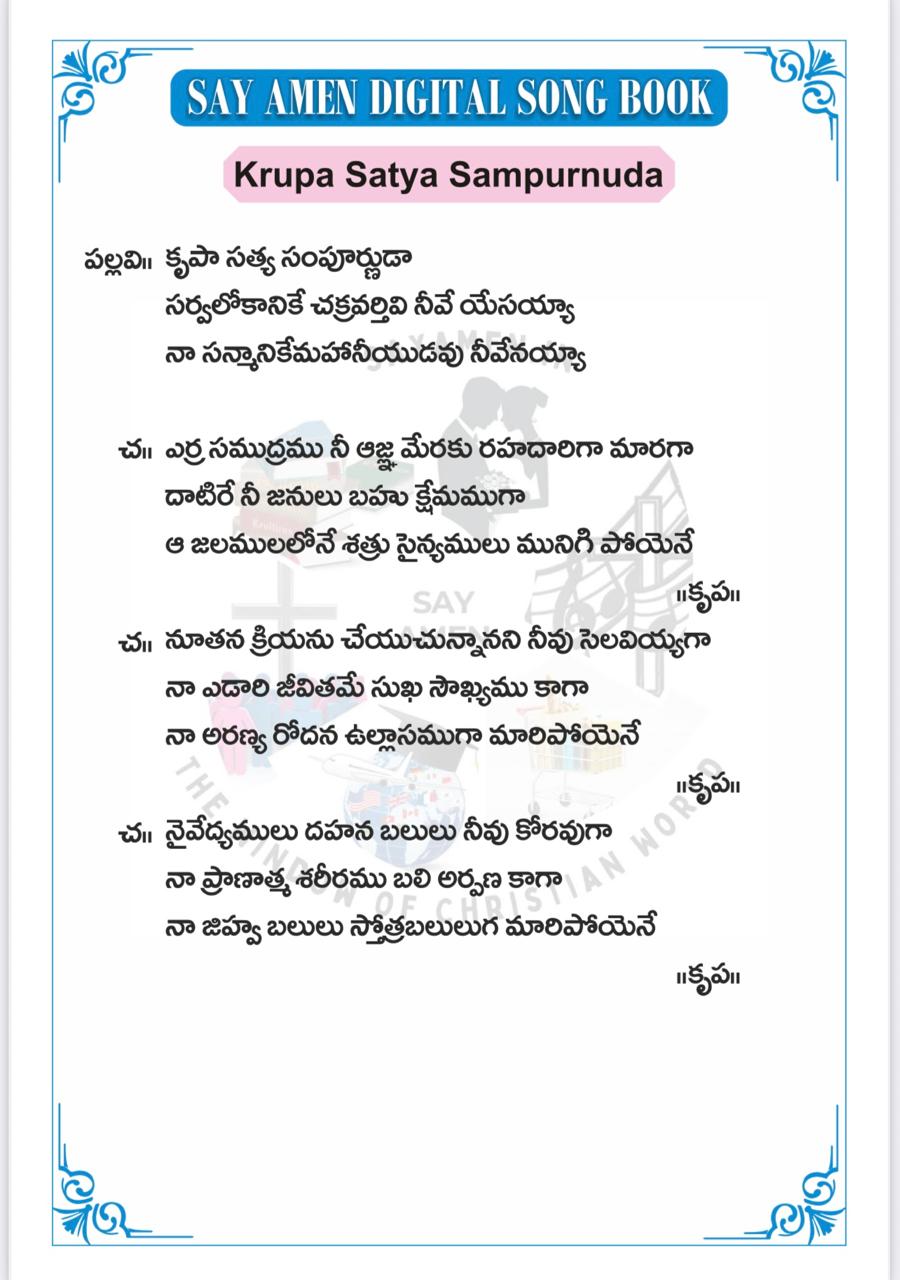 SAY AMEN DIGITAL SONG BOOK
Krupa Satya Sampurnuda
పల్లవి॥ కృపా సత్య సంపూర్ణుడా
సర్వలోకానికే చక్రవర్తివి నీవే యేసయ్యా
నా సన్మానికేమహనీయుడవు నీవేనయ్యా
చ॥ ఎర్ర సముద్రము నీ ఆజ్ఞ మేరకు రహదారిగా మారగా
దాటిరే నీ జనులు బహు క్షేమముగా
ఆ జలములలోనే శత్రు సైన్యములు మునిగి పోయెనే
॥కృప॥
చ॥ నూతన క్రియను చేయుచున్నానని నీవు సెలవియ్యగా
నా ఎడారి జీవితమే సుఖ సౌఖ్యము కాగా
నా అరణ్య రోదన ఉల్లాసముగా మారిపోయెనే
॥కృప॥
చ॥ నైవేద్యములు దహన బలులు నీవు కోరవుగా
నా ప్రాణాత్మ శరీరము బలి అర్పణ కాగా
నా జిహ్వ బలులు స్తోత్రబలులుగ మారిపోయెనే
॥కృప॥
SAYAMEN.IN
SAY
AMEN
THE WINDOW OF CHRISTIAN WORLD